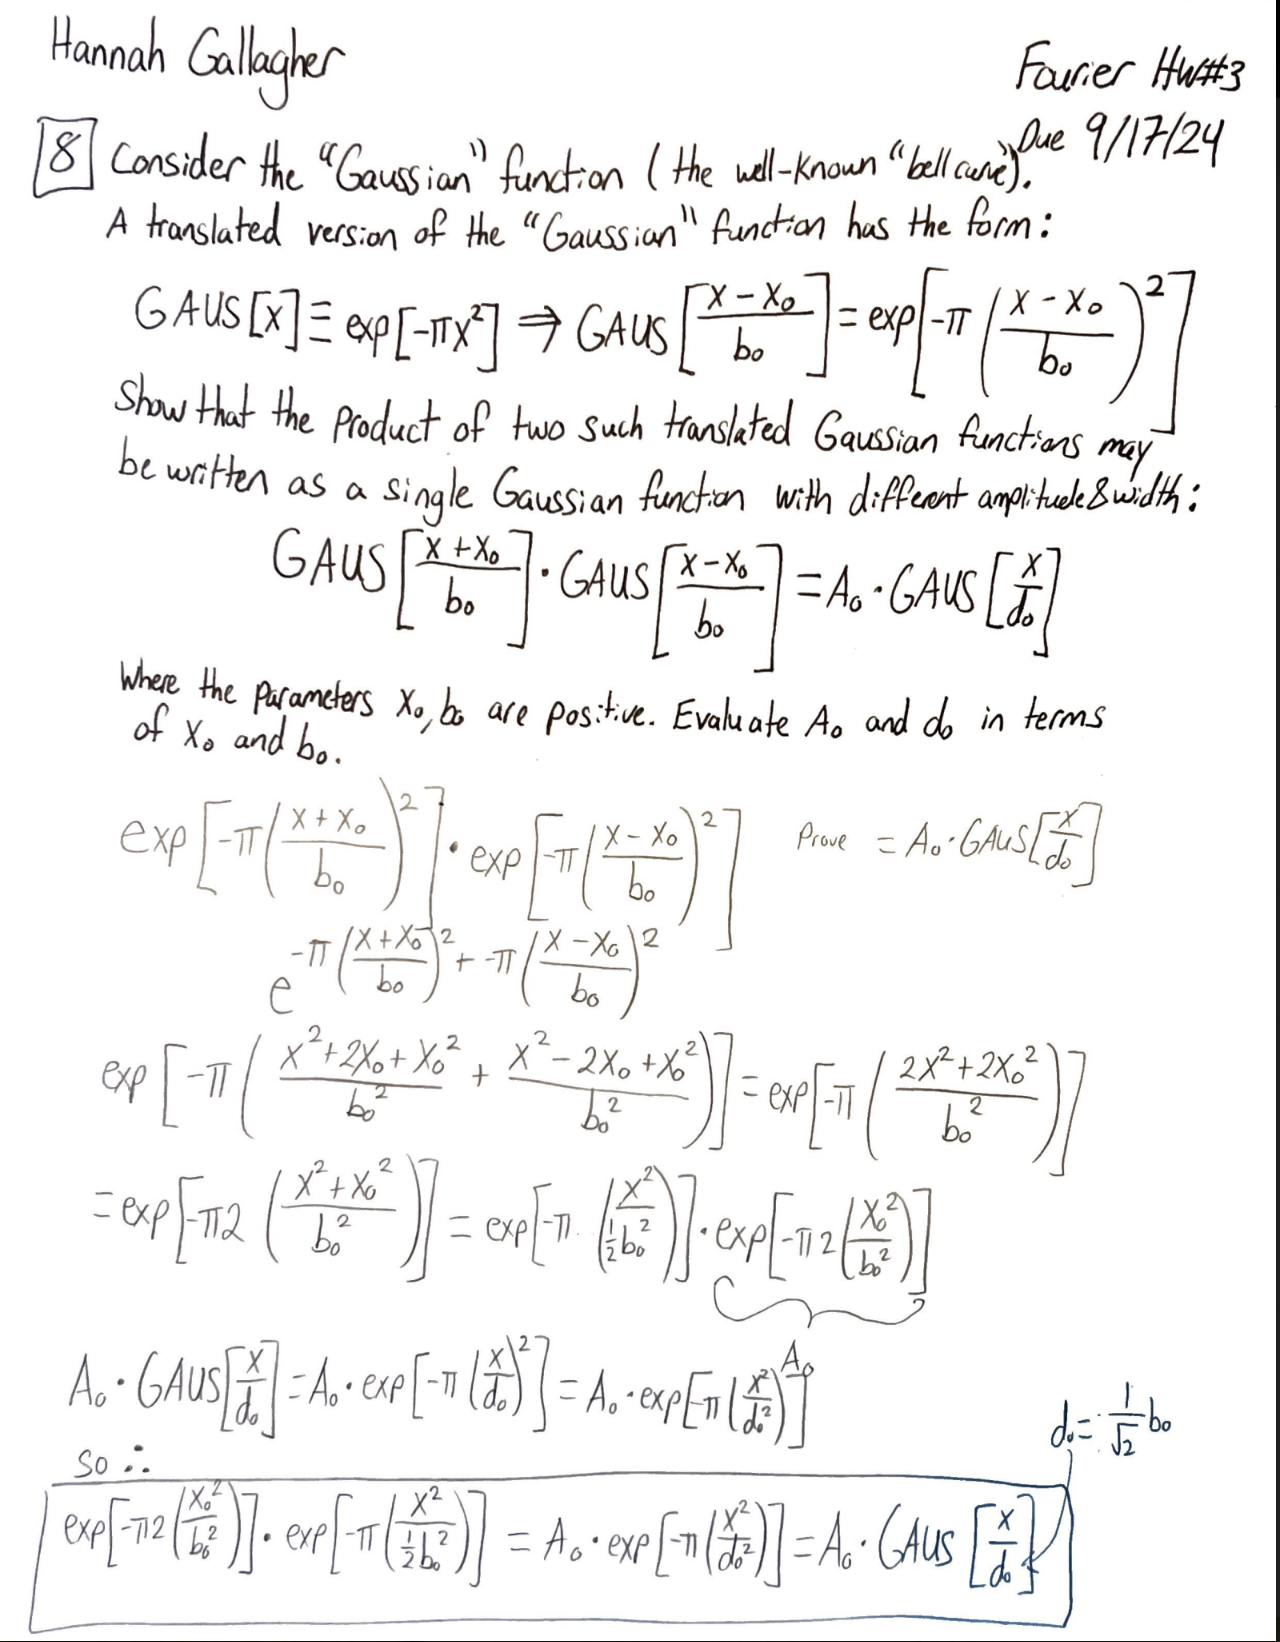 Hannah Gallagher
Fourier HW#3
Due 9/17/24
8 Consider the "Gaussian" function (the well-known "bell curve").
A translated version of the "Gaussian" function has the form:
GAUS[x] ≡ exp[-πx²] ⇒ GAUS[(x - x₀)/b₀] = exp[-π((x - x₀)/b₀)²]
Show that the product of two such translated Gaussian functions may
be written as a single Gaussian function with different amplitude & width:
GAUS[(x + x₀)/b₀] · GAUS[(x - x₀)/b₀] = A₀ · GAUS[x/d₀]
Where the parameters x₀, b₀ are positive. Evaluate A₀ and d₀ in terms
of x₀ and b₀.
exp[-π((x + x₀)/b₀)²] · exp[-π((x - x₀)/b₀)²] Prove = A₀ · GAUS[x/d₀]
e^(-π((x + x₀)/b₀)² + -π((x - x₀)/b₀)²)
exp[-π((x² + 2x₀ + x₀²)/b₀² + (x² - 2x₀ + x₀²)/b₀²)] = exp[-π((2x² + 2x₀²)/b₀²)]
= exp[-π2((x² + x₀²)/b₀²)] = exp[-π · (x²/(½b₀²))] · exp[-π2(x₀²/b₀²)]
A₀
A₀ · GAUS[x/d₀] = A₀ · exp[-π(x/d₀)²] = A₀ · exp[-π(x²/d₀²)]
d₀ = 1/√2 b₀
so ∴
exp[-π2(x₀²/b₀²)] · exp[-π(x²/(½b₀²))] = A₀ · exp[-π(x²/d₀²)] = A₀ · GAUS[x/d₀]